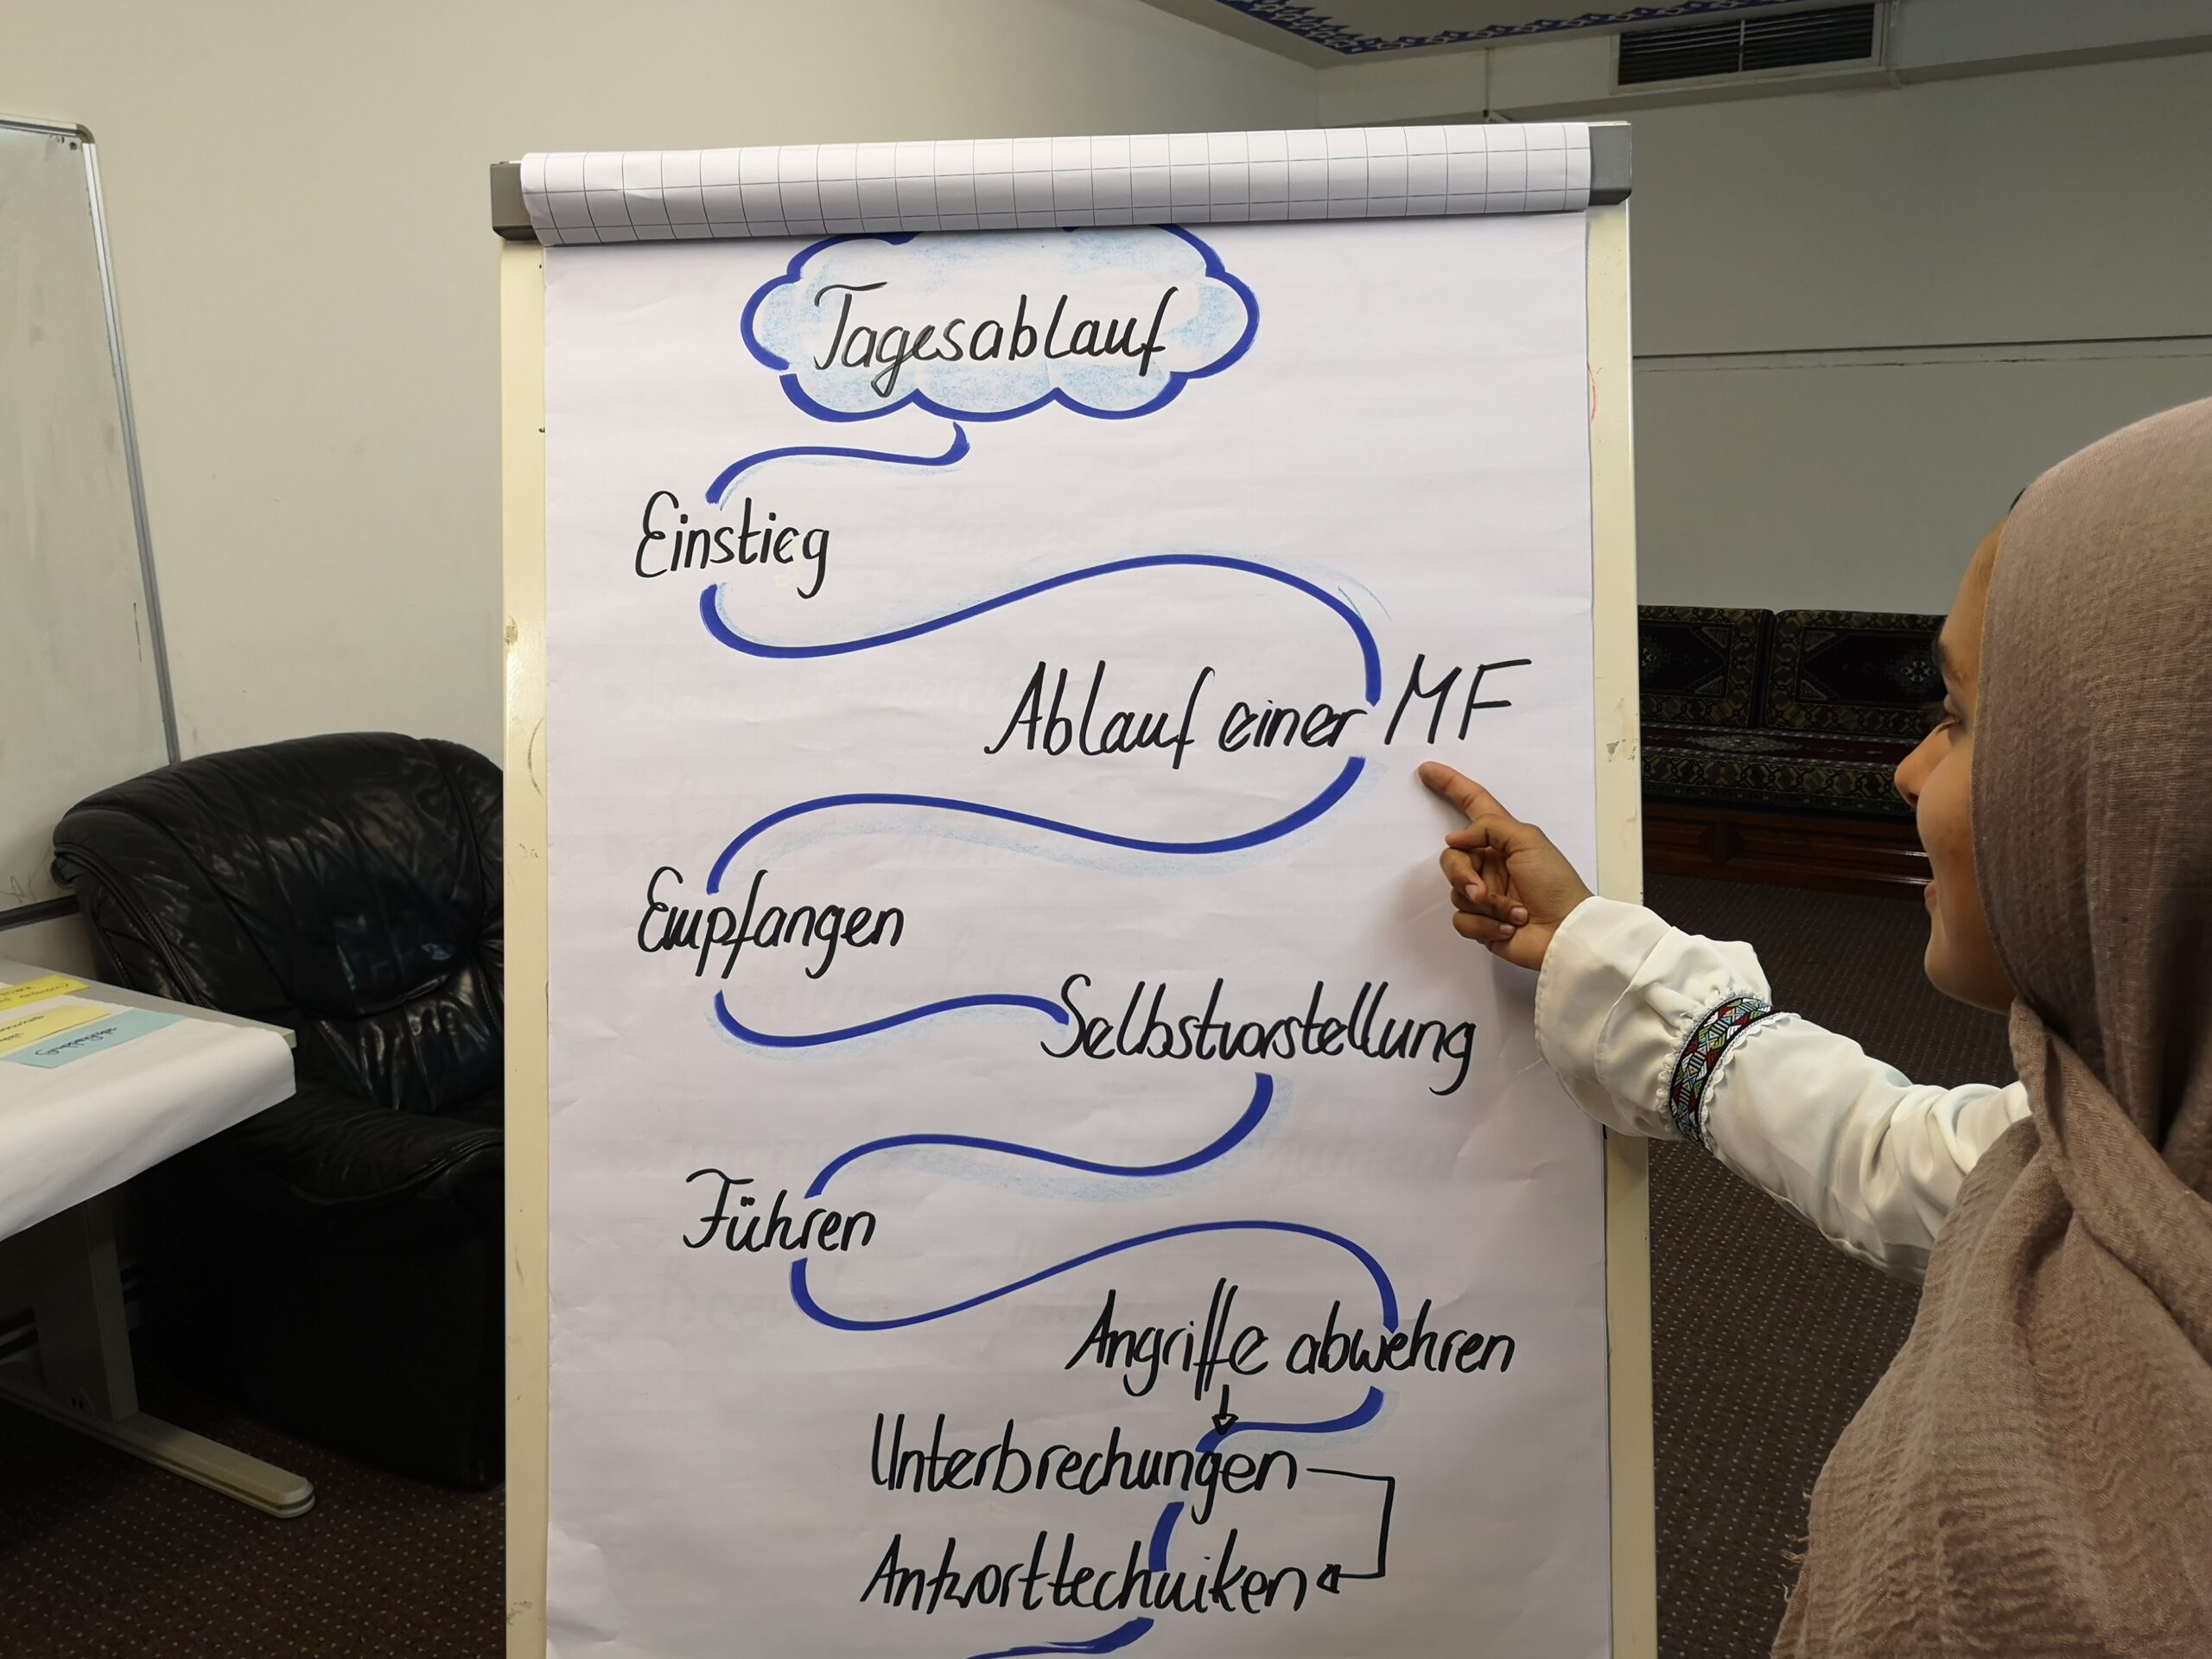 Tagesablauf
Einstieg
Ablauf einer MF
Empfangen
Selbstvorstellung
Führen
Angriffe abwehren
Unterbrechungen
Antworttechniken